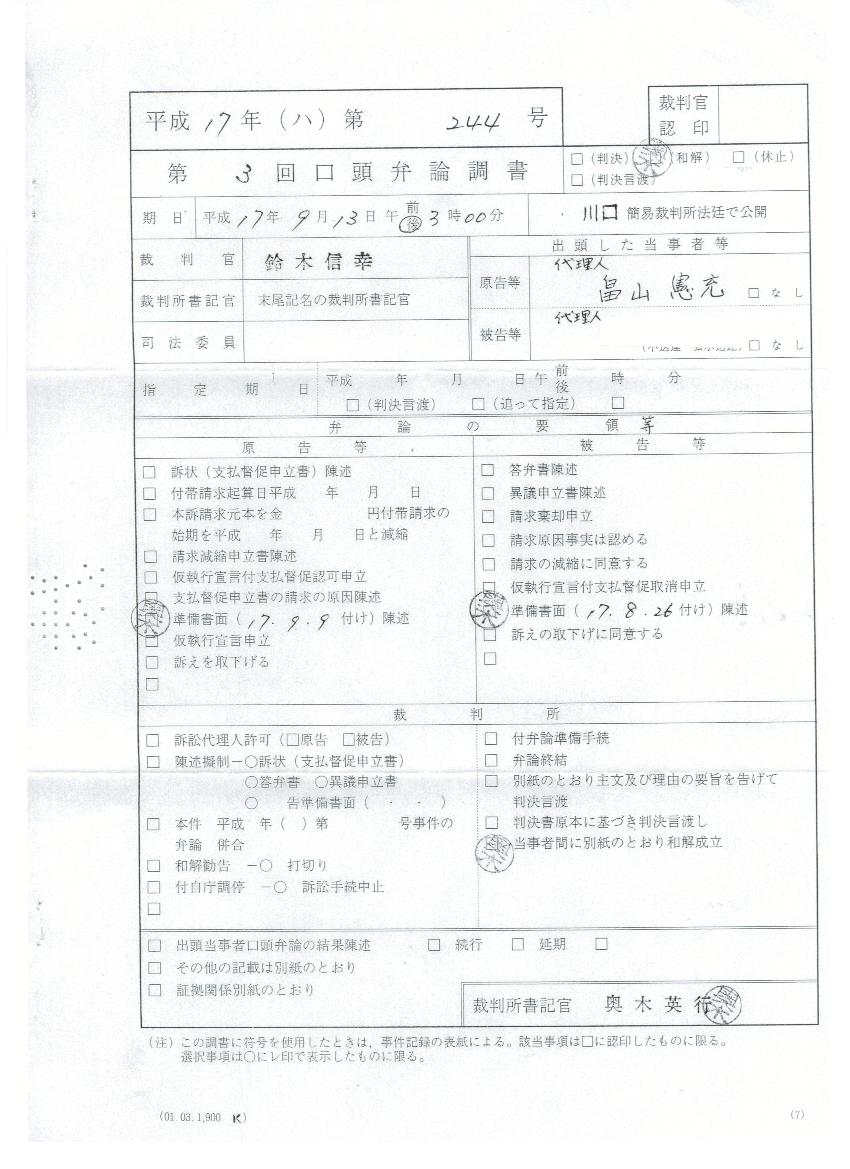 平成 17 年（ハ）第 244 号
裁判官
認印
第 3 回口頭弁論調書
□（判決） （和解） □（休止）
□（判決言渡）
期日 平成 17年 9月 13日 午 前 後 3時00分
川口 簡易裁判所法廷で公開
裁判官 鈴木信幸
出頭した当事者等
裁判所書記官 末尾記名の裁判所書記官
原告等 代理人 畠山憲充 □なし
司法委員
被告等 代理人 □なし
指定期日 平成 年 月 日 午 前 後 時 分
□（判決言渡） □（追って指定） □
弁論の要領等
原告等
□ 訴状（支払督促申立書）陳述
□ 付帯請求起算日平成 年 月 日
□ 本訴請求元本を金 円付帯請求の
始期を平成 年 月 日と減縮
□ 請求減縮申立書陳述
□ 仮執行宣言付支払督促認可申立
□ 支払督促申立書の請求の原因陳述
準備書面（17.9.9 付け）陳述
□ 仮執行宣言申立
□ 訴えを取下げる
□
被告等
□ 答弁書陳述
□ 異議申立書陳述
□ 請求棄却申立
□ 請求原因事実は認める
□ 請求の減縮に同意する
□ 仮執行宣言付支払督促取消申立
準備書面（17.8.26付け）陳述
□ 訴えの取下げに同意する
□
裁判所
□ 訴訟代理人許可（□原告 □被告）
□ 陳述擬制－○訴状（支払督促申立書）
○答弁書 ○異議申立書
○ 告準備書面（ ・ ・ ）
□ 本件 平成 年（ ）第 号事件の
弁論 併合
□ 和解勧告 －○ 打切り
□ 付自庁調停 －○ 訴訟手続中止
□
□ 付弁論準備手続
□ 弁論終結
□ 別紙のとおり主文及び理由の要旨を告げて
判決言渡
□ 判決書原本に基づき判決言渡し
当事者間に別紙のとおり和解成立
□ 出頭当事者口頭弁論の結果陳述 □ 続行 □ 延期 □
□ その他の記載は別紙のとおり
□ 証拠関係別紙のとおり
裁判所書記官 奥木英行
（注）この調書に符号を使用したときは，事件記録の表紙による。該当事項は□に認印したものに限る。
選択事項は○にレ印で表示したものに限る。
（01.03.1,900 K）
（7）